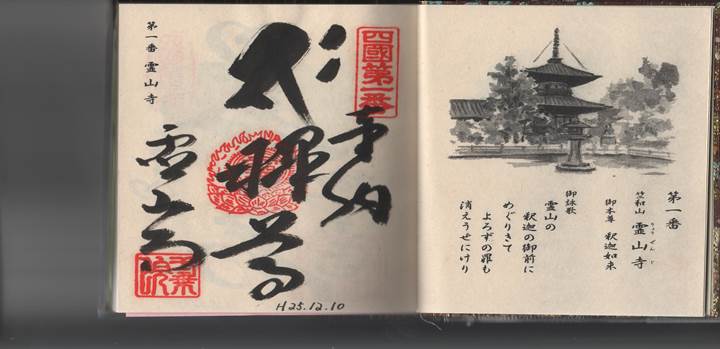 第一番
竺和山 霊山寺
りょうぜんじ
御本尊 釈迦如来
御詠歌
霊山の
釈迦の御前に
めぐりきて
よろずの罪も
消えうせにけり
四國第一番
奉納
霊山寺
第一番 霊山寺
H25.12.10